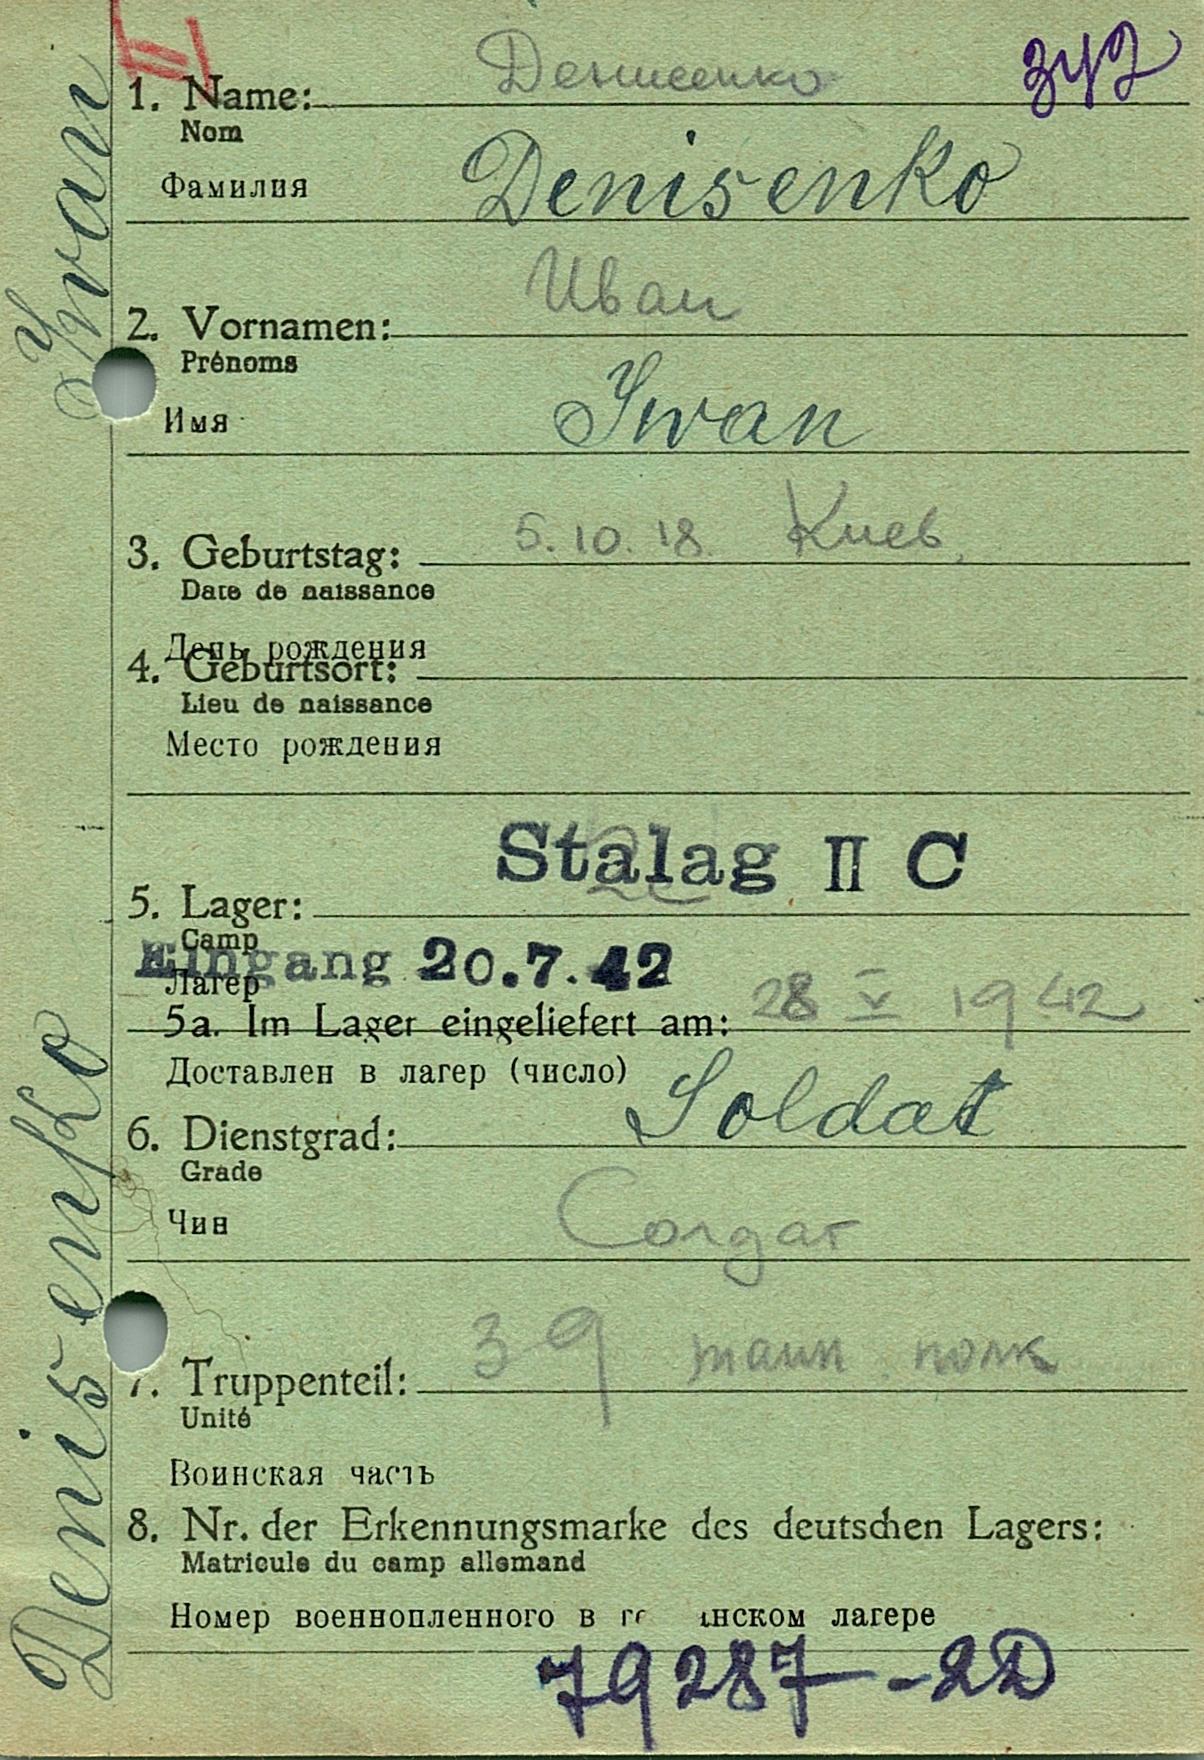 Денисенко 342
1. Name:
Nom
Фамилия Denisenko
Иван
2. Vornamen:
Prénoms
Имя Iwan
3. Geburtstag: 5.10.18. Киев,
Date de naissance
День рождения
4. Geburtsort:
Lieu de naissance
Место рождения
Stalag II C
5. Lager:
Camp
Eingang 20.7.42
Лагер
5a. Im Lager eingeliefert am: 28 V 1942
Доставлен в лагер (число)
6. Dienstgrad: Soldat
Grade
Чин Солдат
7. Truppenteil: 39 танк. полк
Unité
Воинская часть
8. Nr. der Erkennungsmarke des deutschen Lagers:
Matricule du camp allemand
Номер военнопленного в ге инском лагере
79287-2D
Denisenko Iwan